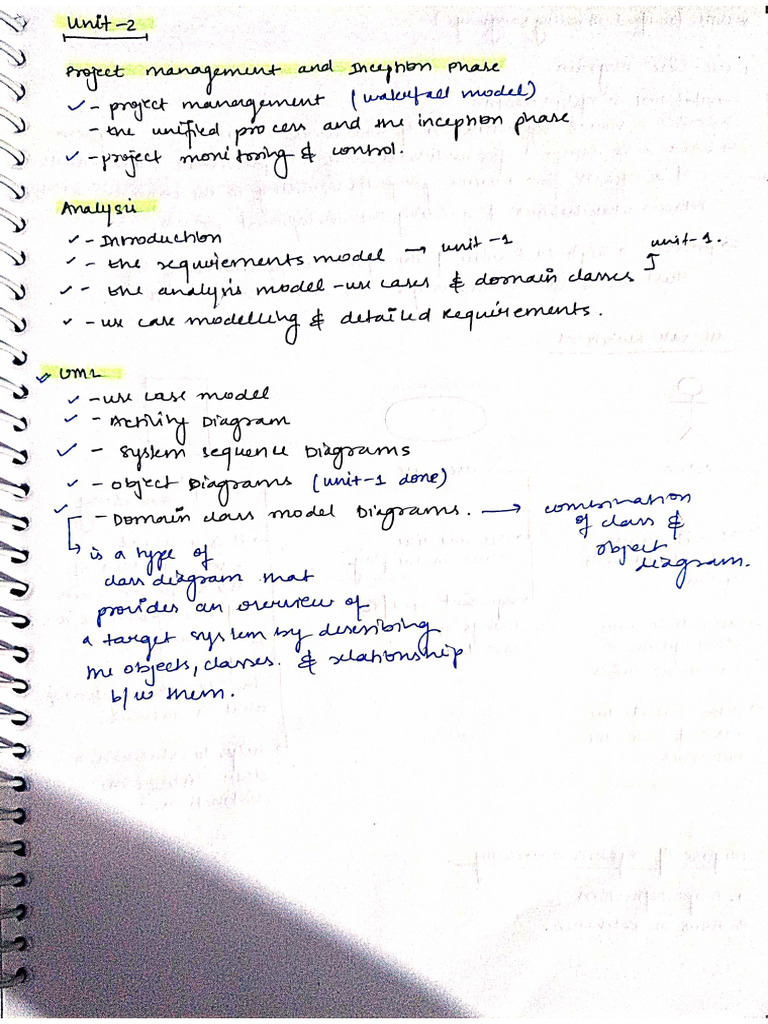 Unit-2
Project management and Inception Phase
✓ - project management (waterfall model)
- the unified process and the inception phase
✓ - project monitoring & control.
Analysis
✓ - Introduction
✓ - the requirements model → unit-1
✓ - the analysis model - use cases & domain classes unit-1.
✓ - use case modelling & detailed requirements.
✓ UML
✓ - use case model
✓ - Activity Diagram
✓ - System Sequence Diagrams
✓ - Object Diagrams (unit-1 done)
✓ - Domain class model Diagrams. → combination of class & object diagram.
↳ is a type of
class diagram that
provides an overview of
a target system by describing
the objects, classes. & relationship
b/w them.